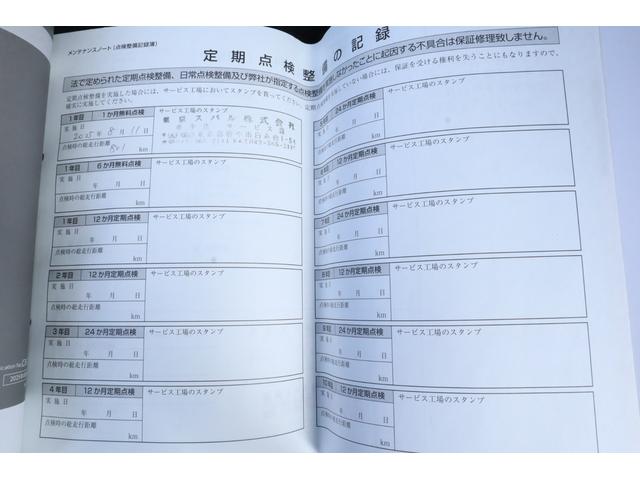 メンテナンスノート（点検整備記録簿）
定期点検整備の記録
法で定められた定期点検整備、日常点検整備及び弊社が指定する点検整備
しなかったことに起因する不具合は保証修理致しません。
定期点検整備を実施した場合には、サービス工場においてスタンプを貰ってください。
していない場合には、保証を受ける権利を失うことにもなりますので、
確実に実施してください。
1年目 1か月無料点検 サービス工場のスタンプ
実施日
2025年8月11日
東京スバル株式会社
点検時の総走行距離
801 km
1年目 6か月無料点検 サービス工場のスタンプ
実施日
年 月 日
点検時の総走行距離
km
1年目 12か月定期点検 サービス工場のスタンプ
実施日
年 月 日
点検時の総走行距離
km
2年目 12か月定期点検 サービス工場のスタンプ
実施日
年 月 日
点検時の総走行距離
km
3年目 24か月定期点検 サービス工場のスタンプ
実施日
年 月 日
点検時の総走行距離
km
4年目 12か月定期点検 サービス工場のスタンプ
実施日
年 月 日
点検時の総走行距離
km
24か月定期点検 サービス工場のスタンプ
年 月 日
点検時の総走行距離
km
12か月定期点検 サービス工場のスタンプ
年 月 日
点検時の総走行距離
km
24か月定期点検 サービス工場のスタンプ
年 月 日
点検時の総走行距離
km
12か月定期点検 サービス工場のスタンプ
年 月 日
点検時の総走行距離
km
24か月定期点検 サービス工場のスタンプ
年 月 日
点検時の総走行距離
km
12か月定期点検 サービス工場のスタンプ
年 月 日
点検時の総走行距離
km